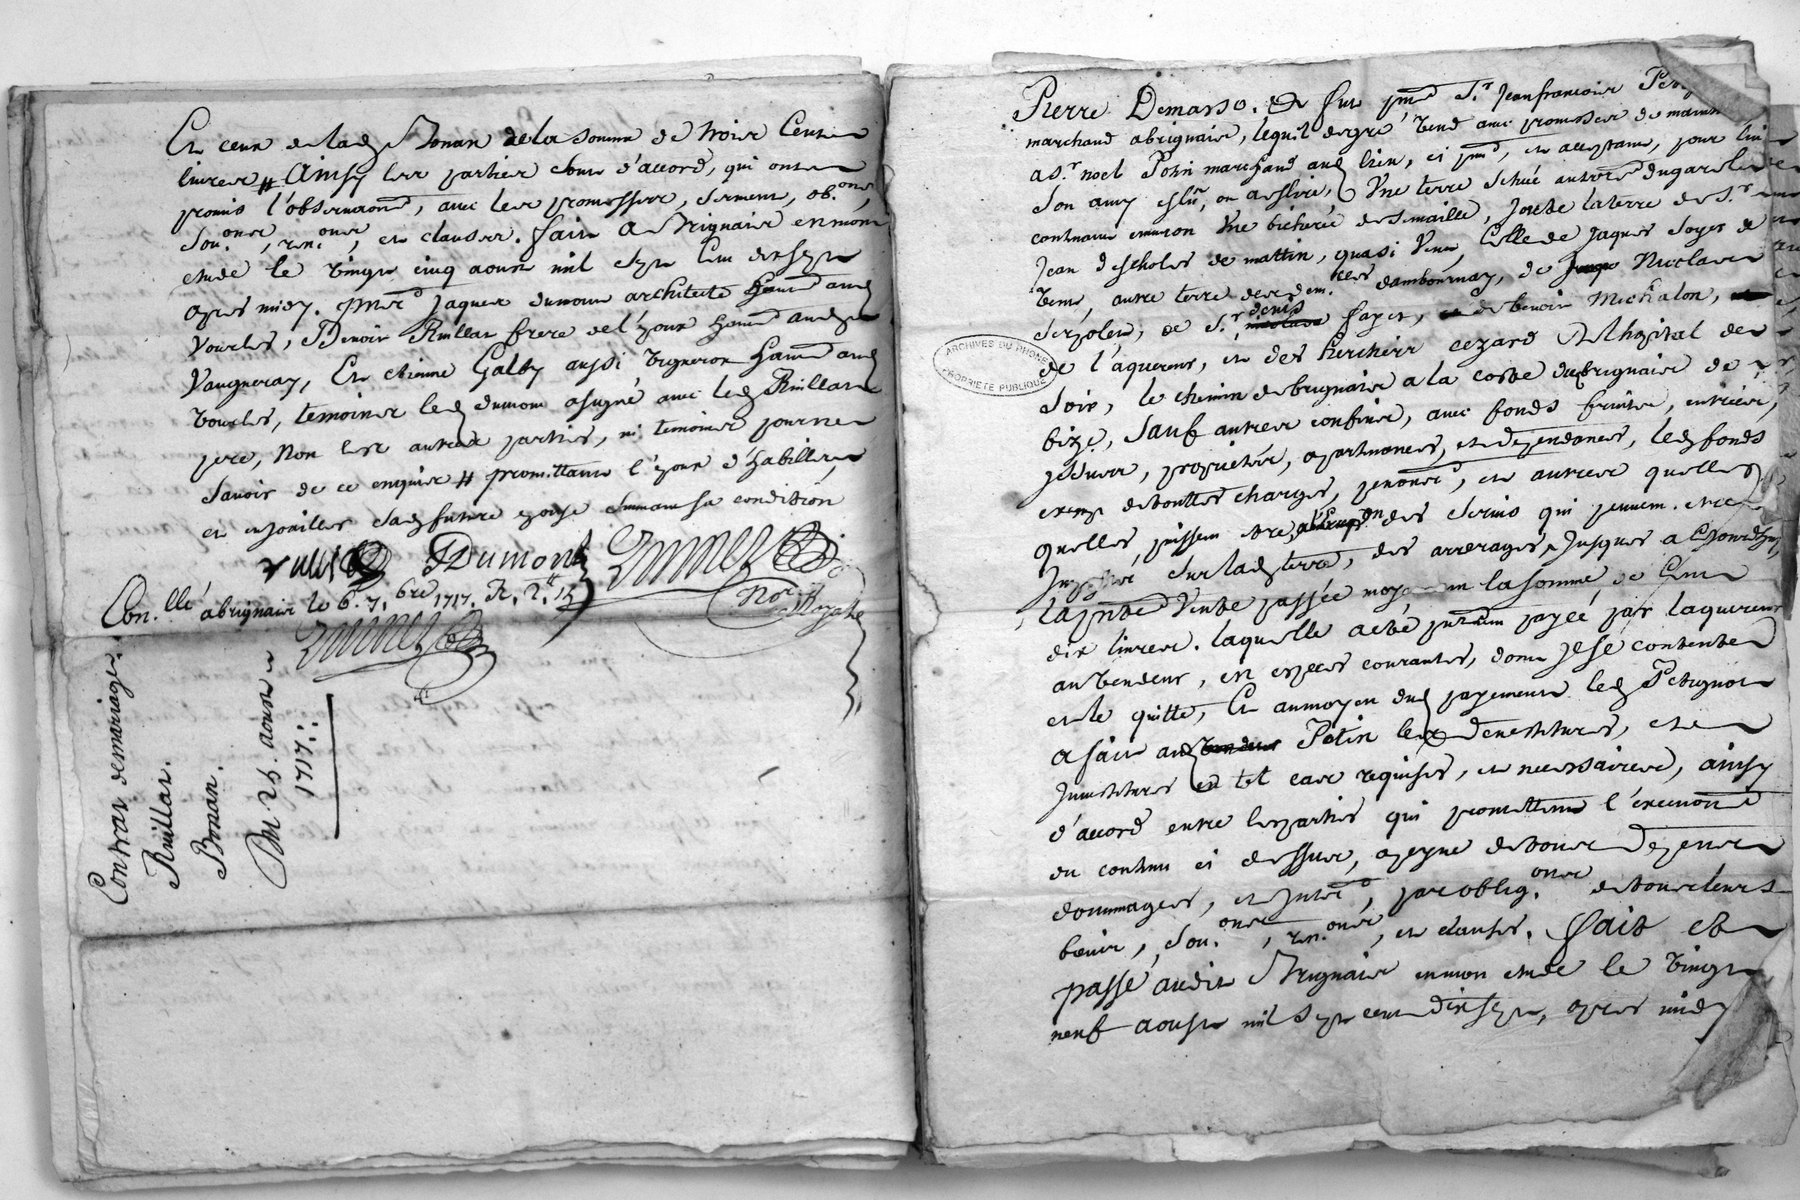 Et ceux de lad Bonan de la somme de troies Cents
livres # Ainsy les parties sont d'accord, qui ont
promis l'observaōnd, avec les promesses, serment, ob.ons,
sou.ons, ren.ons, et clauses. fait a Brignais en mon
etude le vingt cinq aoust mil sept cent dix sept
apres midy. pnts Jaques dumont architecte hant aud
Vourles, Benoit Ruillat frere de l'epoux hant aud
Vaugneray, Et etienne Galby aussi vigneron hant aud
Vourles, temoins led dumont a signé avec led Ruillat
pere, Non les autres parties, ni temoins pour ne
savoir de ce enquis # promettant l'epoux d'habiller
et enjoailler sad future epouse suivant sa condition
Dumont
Not. Royale
Con.llé a brignais le 6. 7.bre 1717. R. 2.tt
Contrat de mariage.
Ruillat.
Bonan.
Du 25. aoust
1717:
Pierre Demasso. Et fut pnt S.r Jean francois
marchand a brignais, lequel de gré vend avec promesse de maint
a S.r noel Potin marchand aud lieu, ci pnt, et acceptant, pour lui
son amy eslu, ou a eslire, Une terre située au terre du garel
contenant environ Une bicherée de semaille, Joste la terre de S.r
Jean deschols de mattin, quasi Vent, Celle de Jaques Soyer de
Vent, autre terre des dem.lles dambournay, de Niclas
Serpolet, de S.r denis fayet, de benoit Michalon,
de l'aquereur, et des herchers cezard Et l'hopital de
Soir, le chemin de brignais a la coste du brignais de
bize, Sauf autres confins, avec fonds fruits, entrées,
jssues, proprietés, apartenances, et dependances, led fonds
exemp de touttes charges, pensions, et autres quelles
Quelles puissent etre des servis qui peuvent etre
Imposé sur lad terre, des arrerages Jusques a
la pnte Vente passée moyenn la somme de Cent
dix livres. laquelle a eté pntem payée par laquereur
au vendeur, en especes courantes, dont Il se contente
et le quitte, Et au moyen dud payement led Petignot
a fait aud Potin les devestitures, et
Investitures en tel cas requises, et necessaires, ainsy
d'accord entre les parties qui promettent l'execution
du contenu ci dessus, a peyne de tous depens
dommages, et Interets, par oblig.ons de tous leurs
biens, sou.ons, ren.ons, et clauses. fait Et
passé audit Brignais en mon etude le vingt
neuf aoust mil sept cent dix sept, apres midy
ARCHIVES DU RHONE
PROPRIETE PUBLIQUE